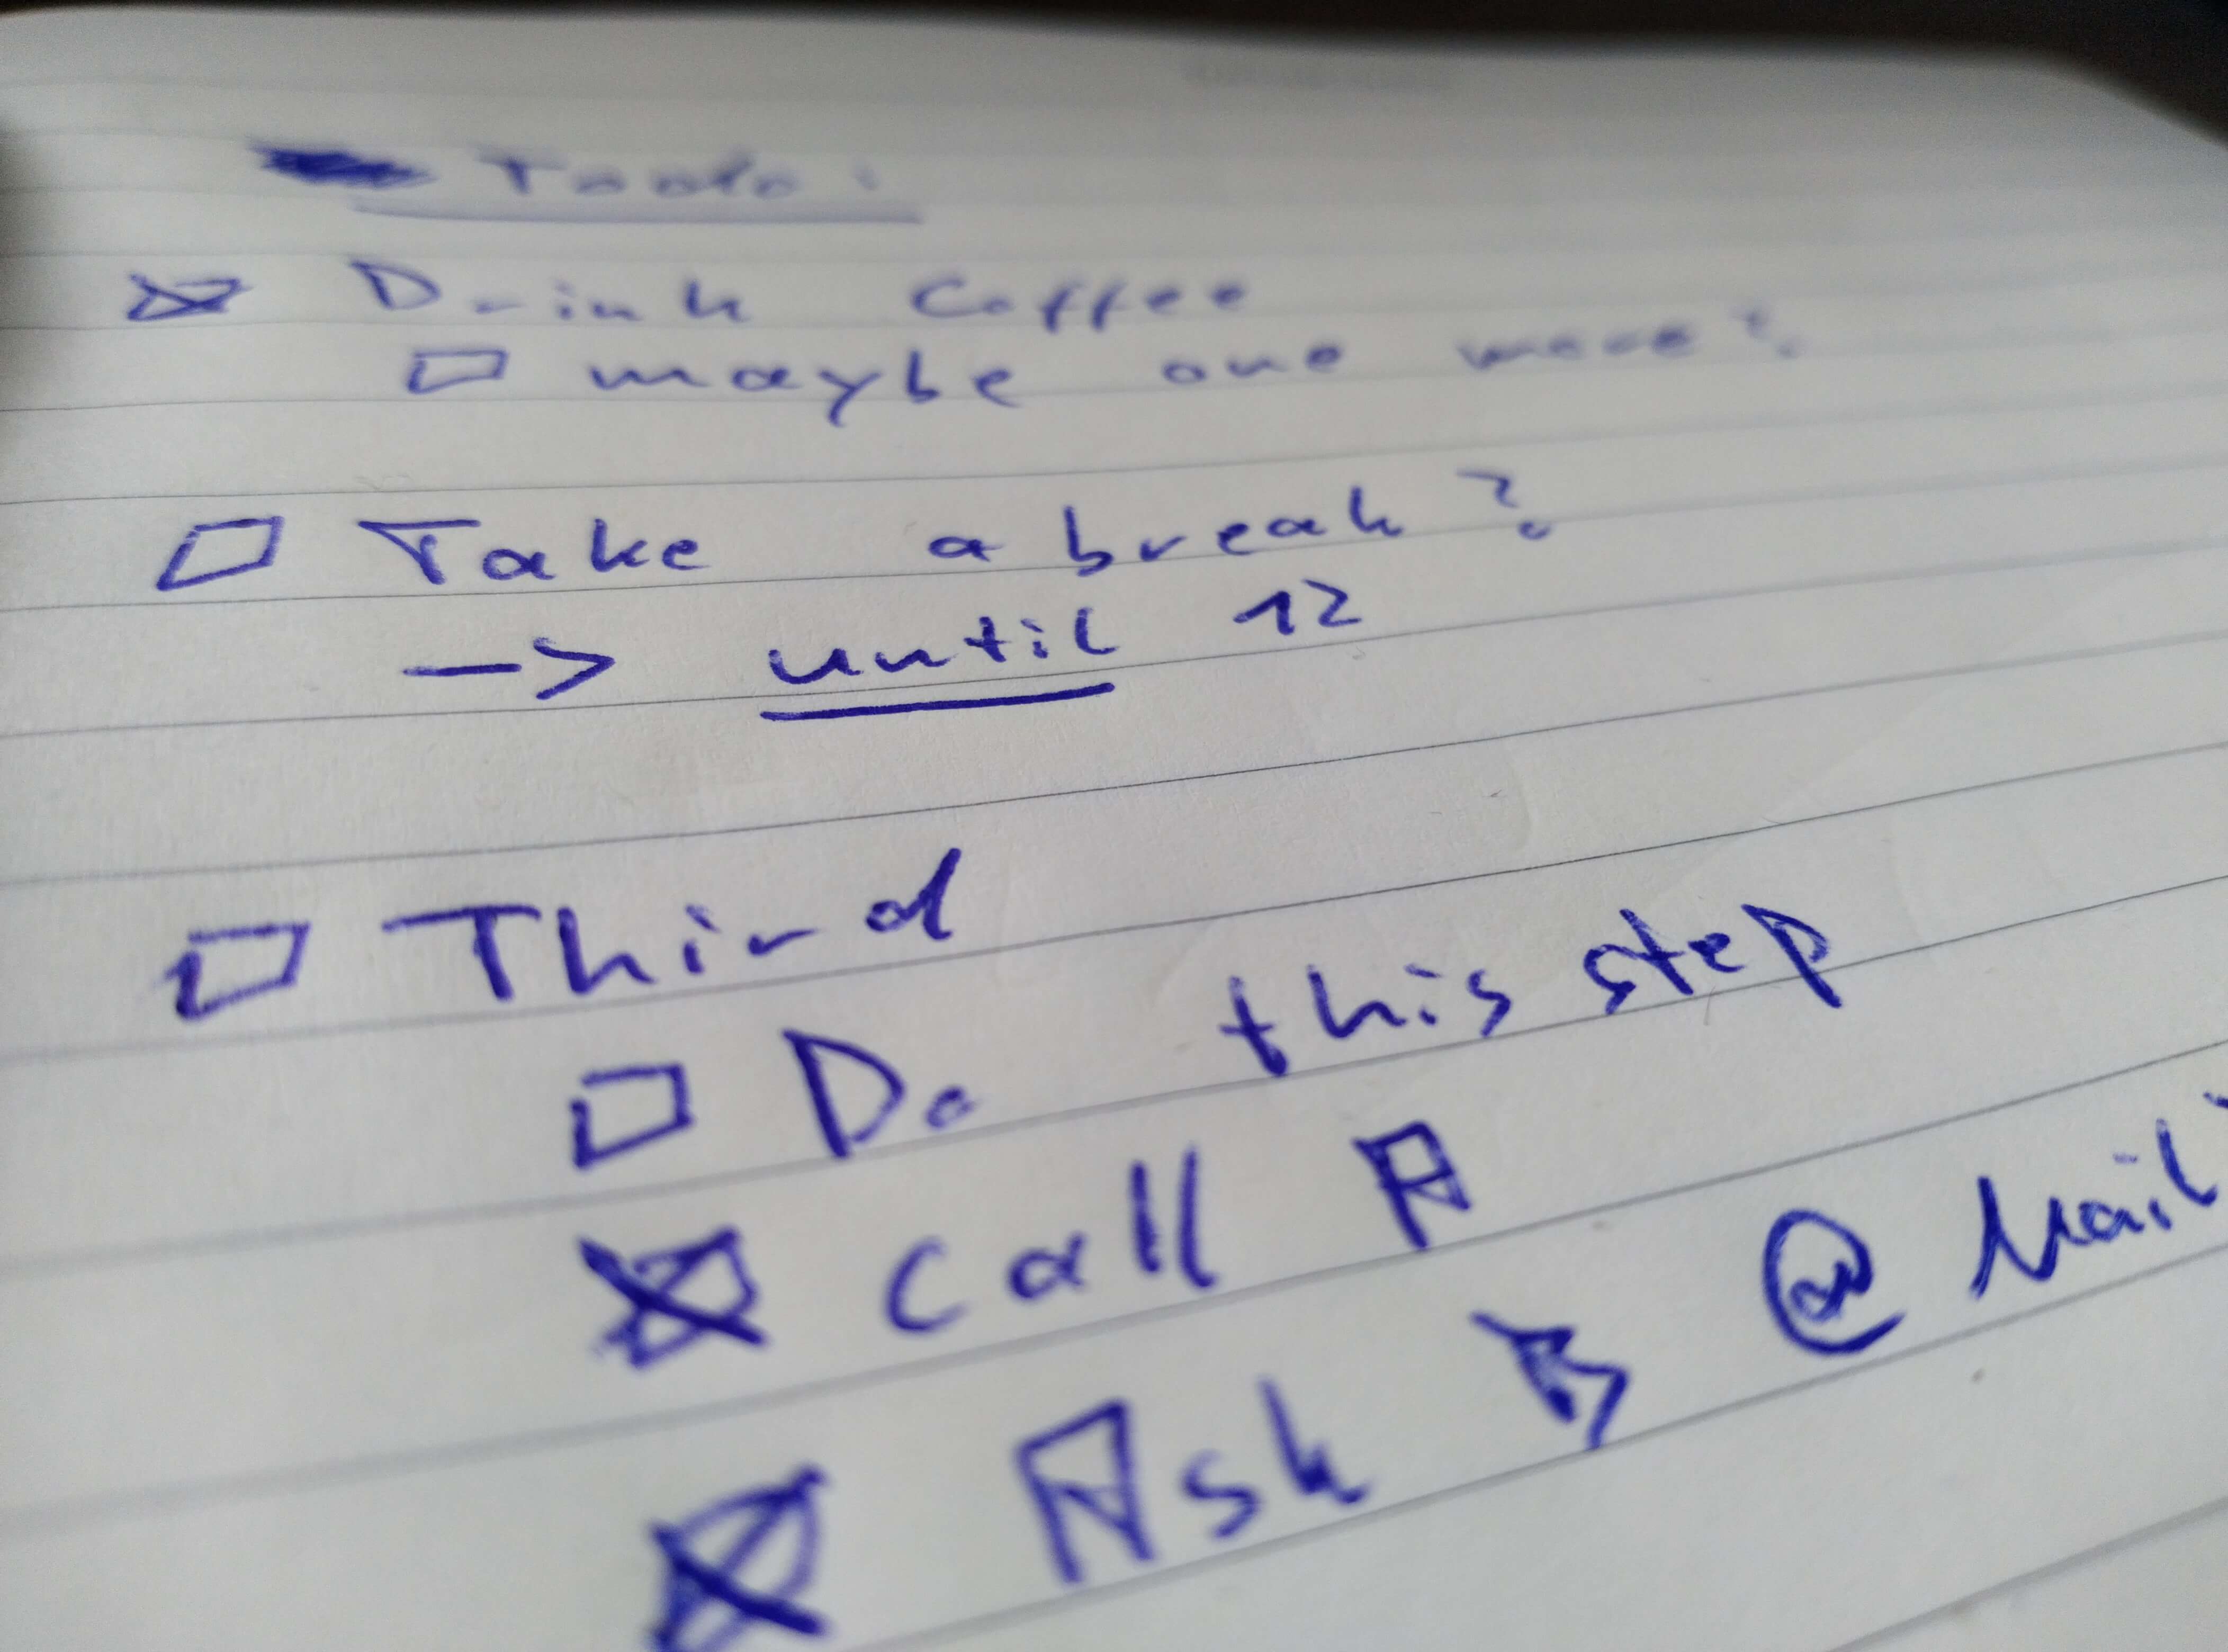 Todo:
☒ Drink Coffee
☐ maybe one more?
☐ Take a break?
-> until 12
☐ Third
☐ Do this step
☒ Call A
☒ Ask B @ Mail